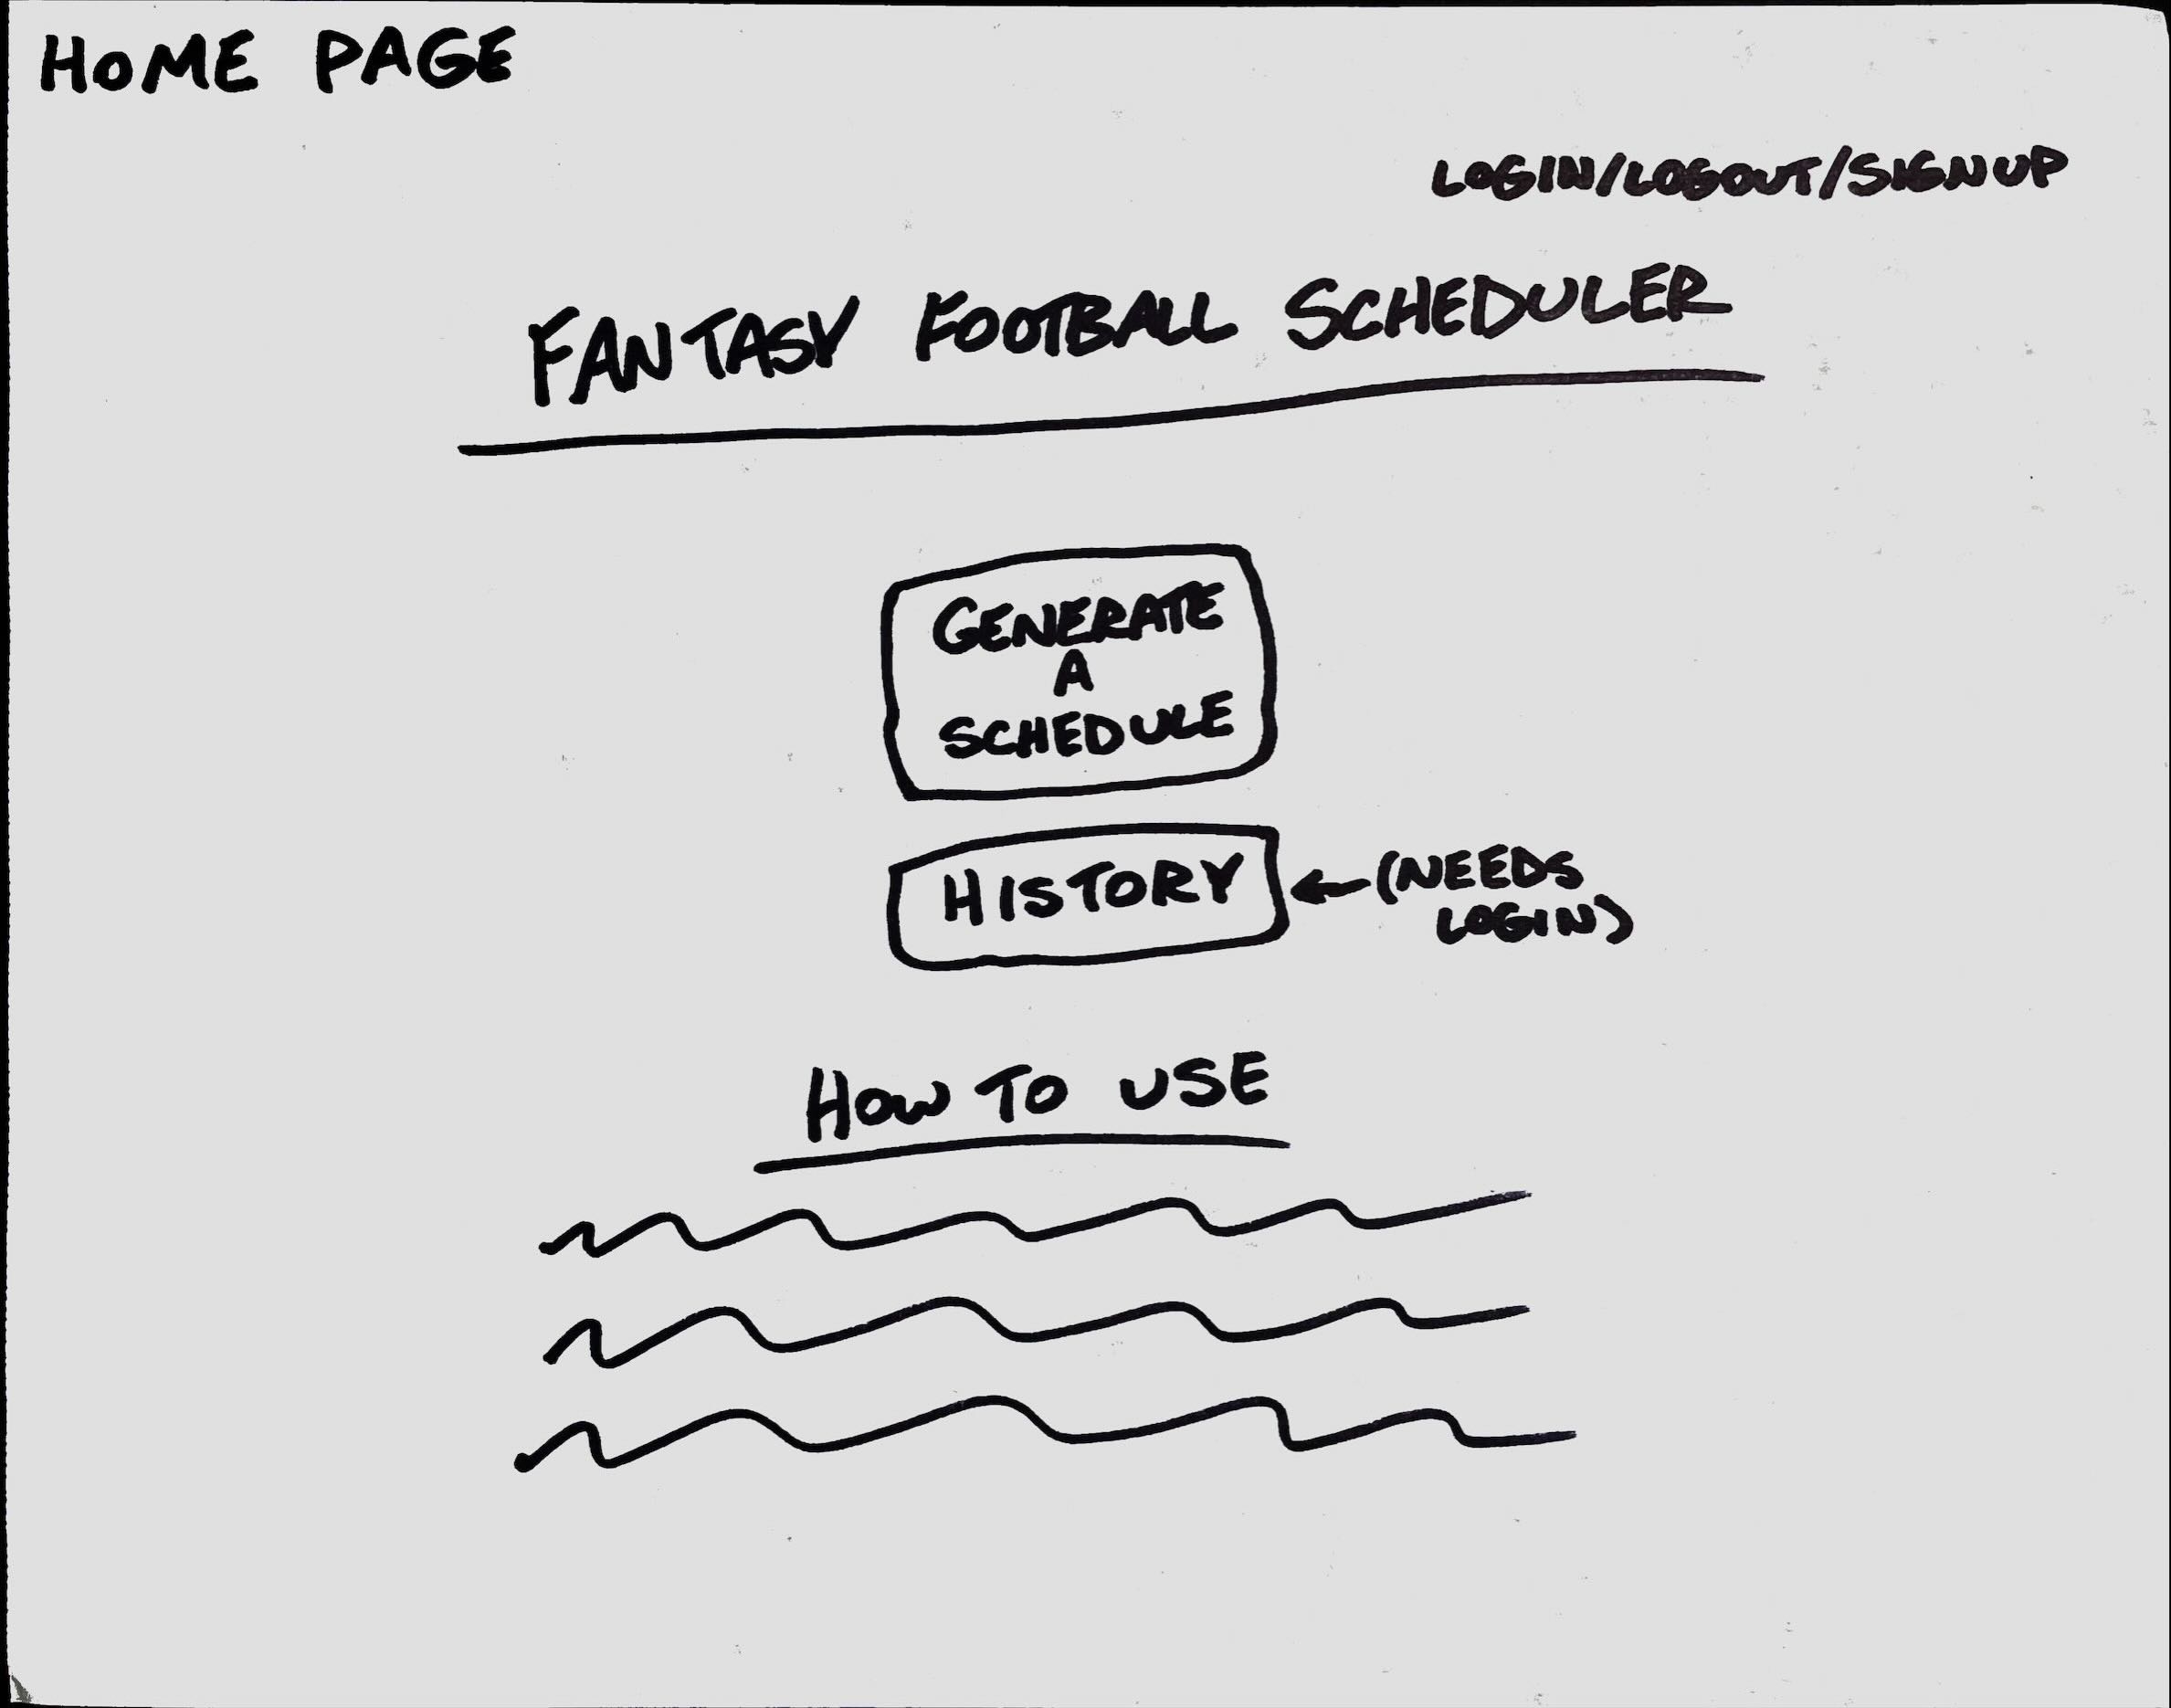 HOME PAGE
LOGIN/LOGOUT/SIGNUP
FANTASY FOOTBALL SCHEDULER
GENERATE
A
SCHEDULE
HISTORY
(NEEDS
LOGIN)
HOW TO USE